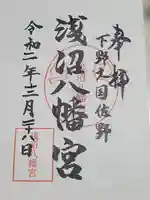 奉拝
下野之国佐野
浅沼八幡宮
令和二年十二月二十八日
浅沼八幡宮